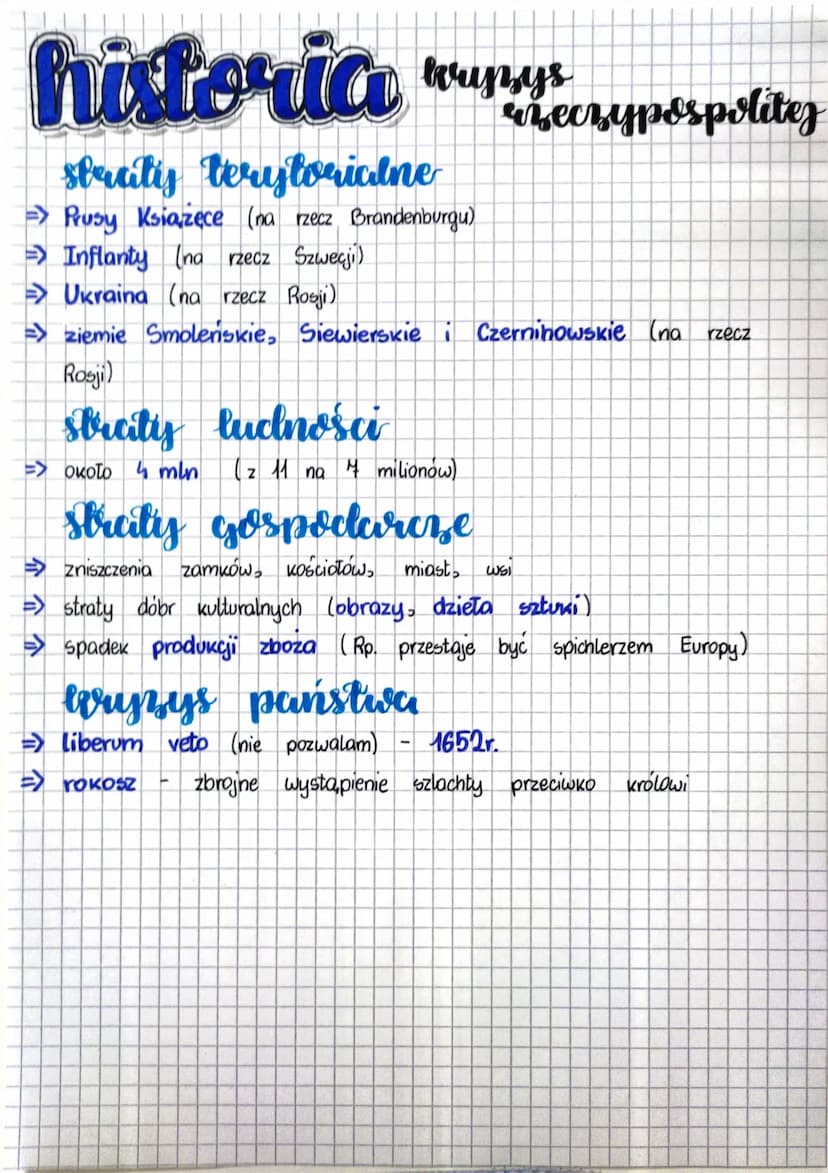 historia kryzys
rzeczypospolitej
straty terytorialne
=> Prusy Książęce (na rzecz Brandenburgu)
=> Inflanty (na rzecz Szwecji)
=> Ukraina (na rzecz Rosji)
=> ziemie Smoleńskie, Siewierskie i Czernihowskie (na rzecz
Rosji)
straty ludności
=> około 4 mln (z 11 na 7 milionów)
straty gospodarcze
=> zniszczenia zamków, kościołów, miast, wsi
=> straty dóbr kulturalnych (obrazy, dzieła sztuki)
=> spadek produkcji zboża (Rp. przestaje być spichlerzem Europy)
kryzys państwa
=> liberum veto (nie pozwalam) - 1652r.
=> rokosz - zbrojne wystąpienie szlachty przeciwko królowi